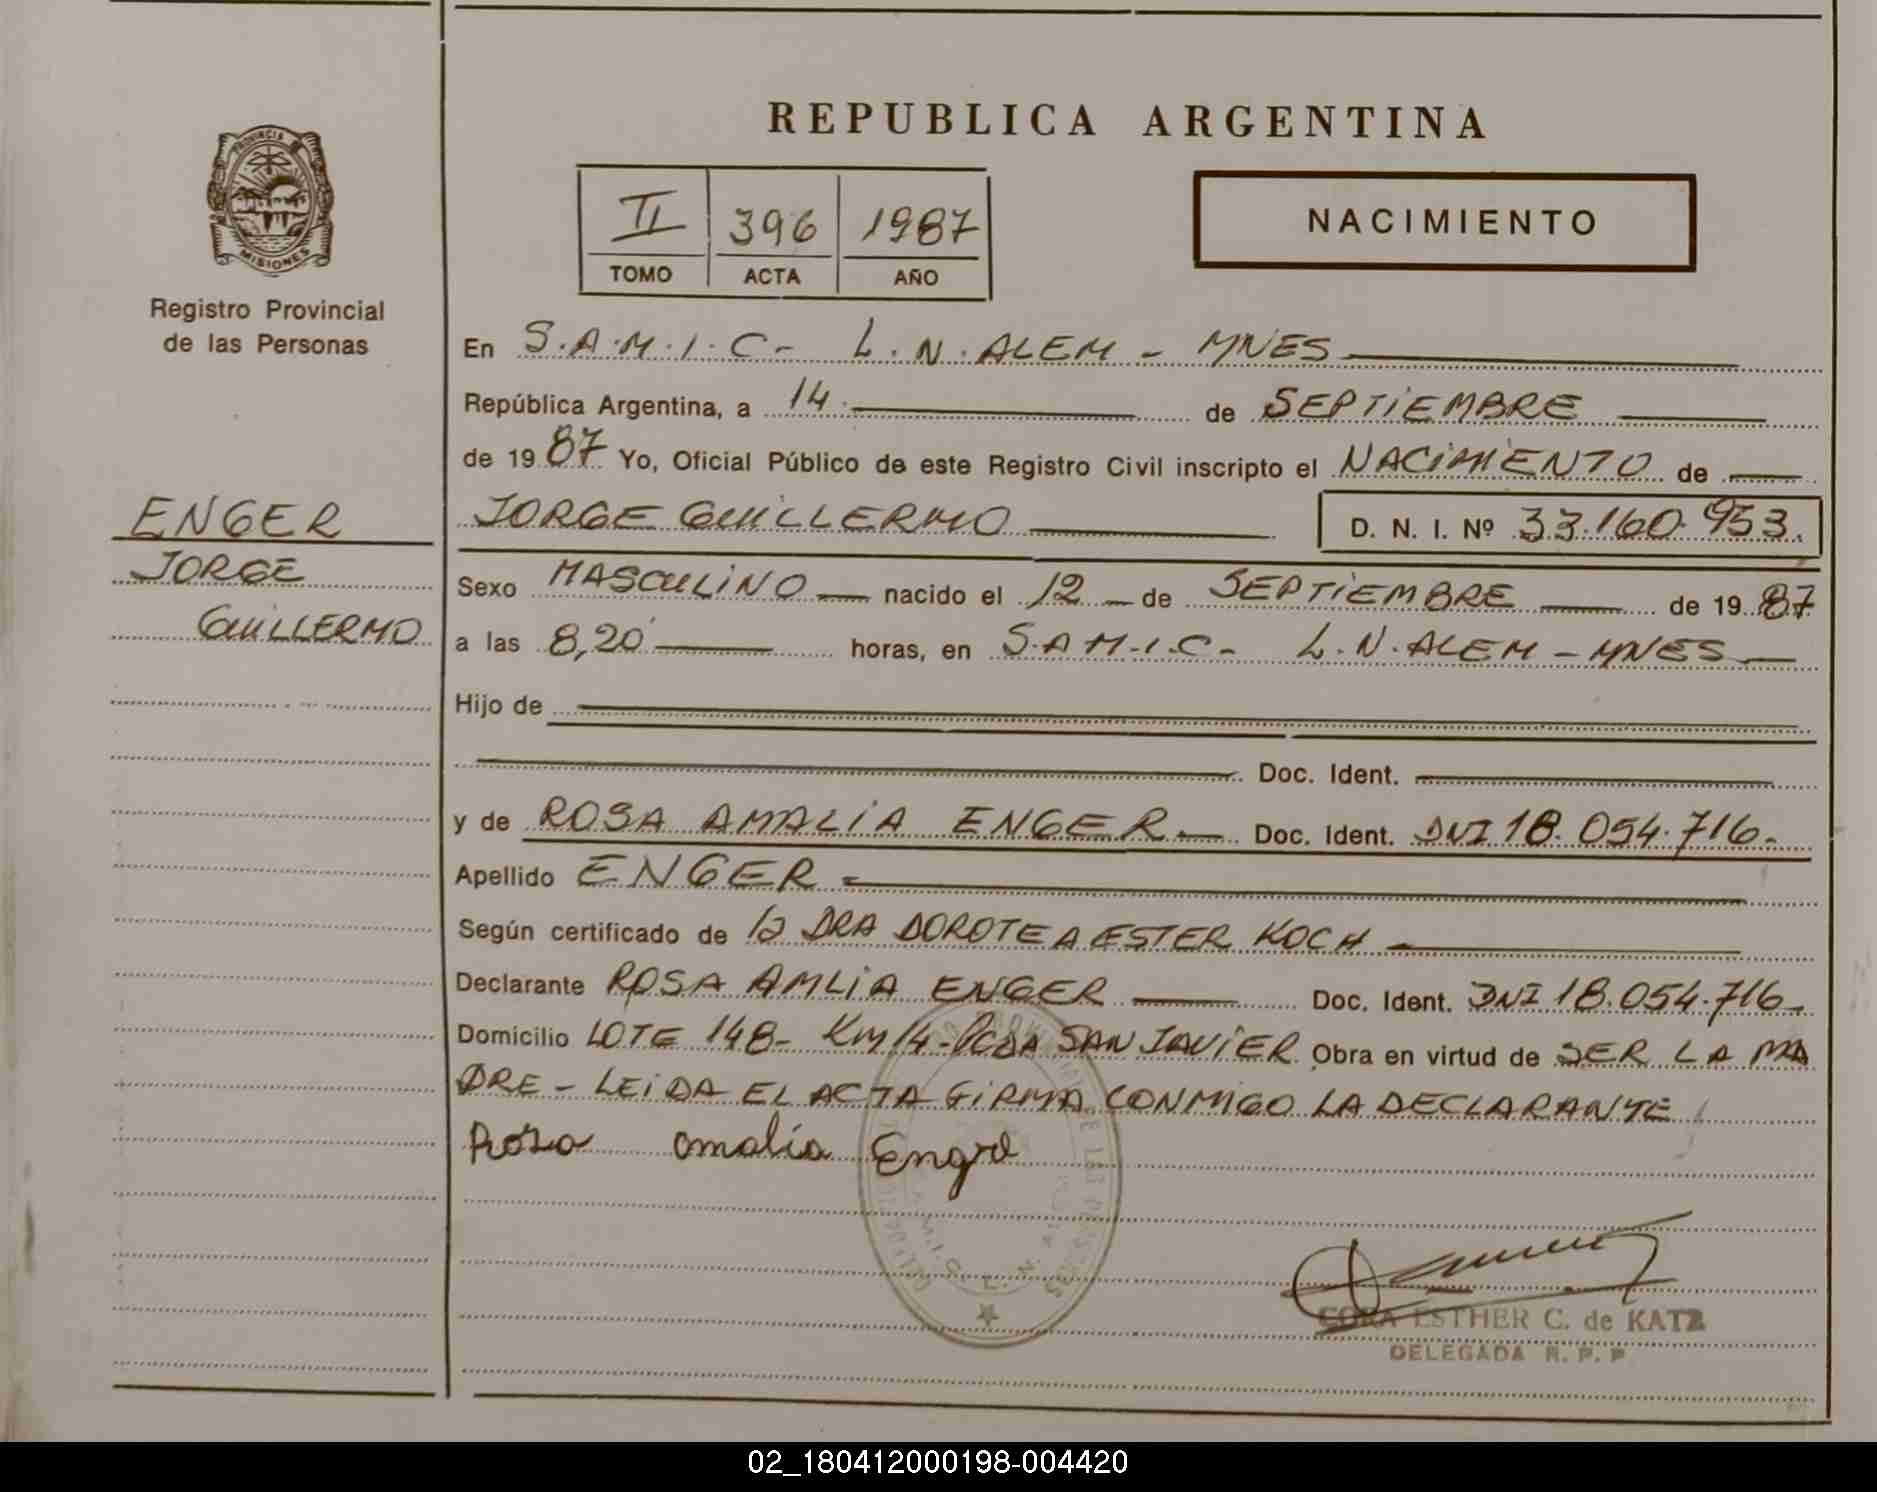 REPUBLICA ARGENTINA
PROVINCIA
MISIONES
Registro Provincial
de las Personas
II 396 1987
TOMO ACTA AÑO
NACIMIENTO
En S.A.M.I.C- L.N.ALEM - MNES
República Argentina, a 14 de SEPTIEMBRE
de 19 87 Yo, Oficial Público de este Registro Civil inscripto el NACIMIENTO de
ENGER
JORGE
GUILLERMO
JORGE GUILLERMO D. N. I. Nº 33.160.953.
Sexo MASCULINO nacido el 12 de SEPTIEMBRE de 19 87
a las 8,20 horas, en S.A.M.I.C- L.N.ALEM - MNES
Hijo de
Doc. Ident.
y de ROSA AMALIA ENGER Doc. Ident. DNI 18.054.716.
Apellido ENGER
Según certificado de la DRA DOROTEA ESTER KOCH
Declarante ROSA AMLIA ENGER Doc. Ident. DNI 18.054.716
Domicilio LOTE 148- Km 14- SAN JAVIER Obra en virtud de SER LA MA
DRE - LEIDA EL ACTA FIRMA CONMIGO LA DECLARANTE
Rosa amalia
CORA ESTHER C. de KATZ
DELEGADA R. P. P
02_180412000198-004420